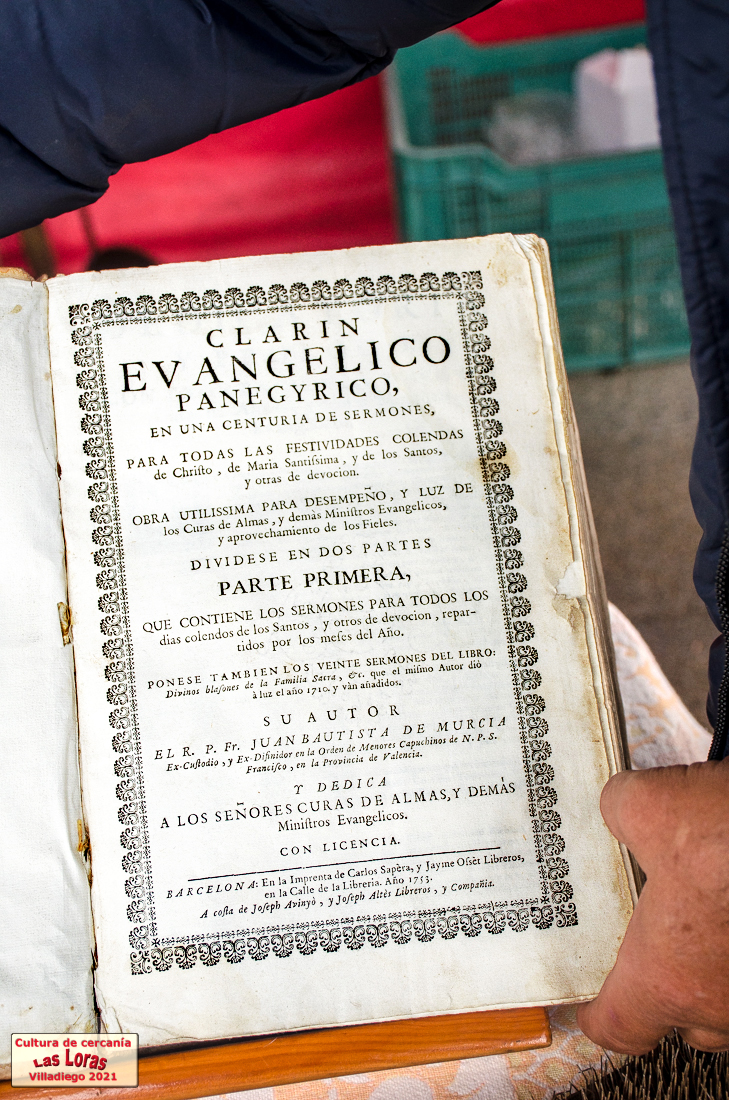 CLARIN
EVANGELICO
PANEGYRICO,
EN UNA CENTURIA DE SERMONES,
PARA TODAS LAS FESTIVIDADES COLENDAS
de Chriſto, de Maria Santiſsima, y de los Santos,
y otras de devocion.
OBRA UTILISSIMA PARA DESEMPEÑO, Y LUZ DE
los Curas de Almas, y demàs Miniſtros Evangelicos,
y aprovechamiento de los Fieles.
DIVIDESE EN DOS PARTES
PARTE PRIMERA,
QUE CONTIENE LOS SERMONES PARA TODOS LOS
dias colendos de los Santos, y otros de devocion, repar-
tidos por los meſes del Año.
PONESE TAMBIEN LOS VEINTE SERMONES DEL LIBRO:
Divinos blaſones de la Familia Sacra, &c. que el miſmo Autor diò
à luz el año 1710. y vàn añadidos.
SU AUTOR
EL R. P. Fr. JUAN BAUTISTA DE MURCIA
Ex-Cuſtodio, y Ex-Difinidor en la Orden de Menores Capuchinos de N. P. S.
Franciſco, en la Provincia de Valencia.
Y DEDICA
A LOS SEÑORES CURAS DE ALMAS, Y DEMÀS
Miniſtros Evangelicos.
CON LICENCIA.
BARCELONA: En la Imprenta de Carlos Sapèra, y Jayme Oſsèt Libreros,
en la Calle de la Libreria. Año 1753.
A coſta de Joſeph Avinyò, y Joſeph Altès Libreros, y Compañia.
Cultura de cercanía
Las Loras
Villadiego 2021